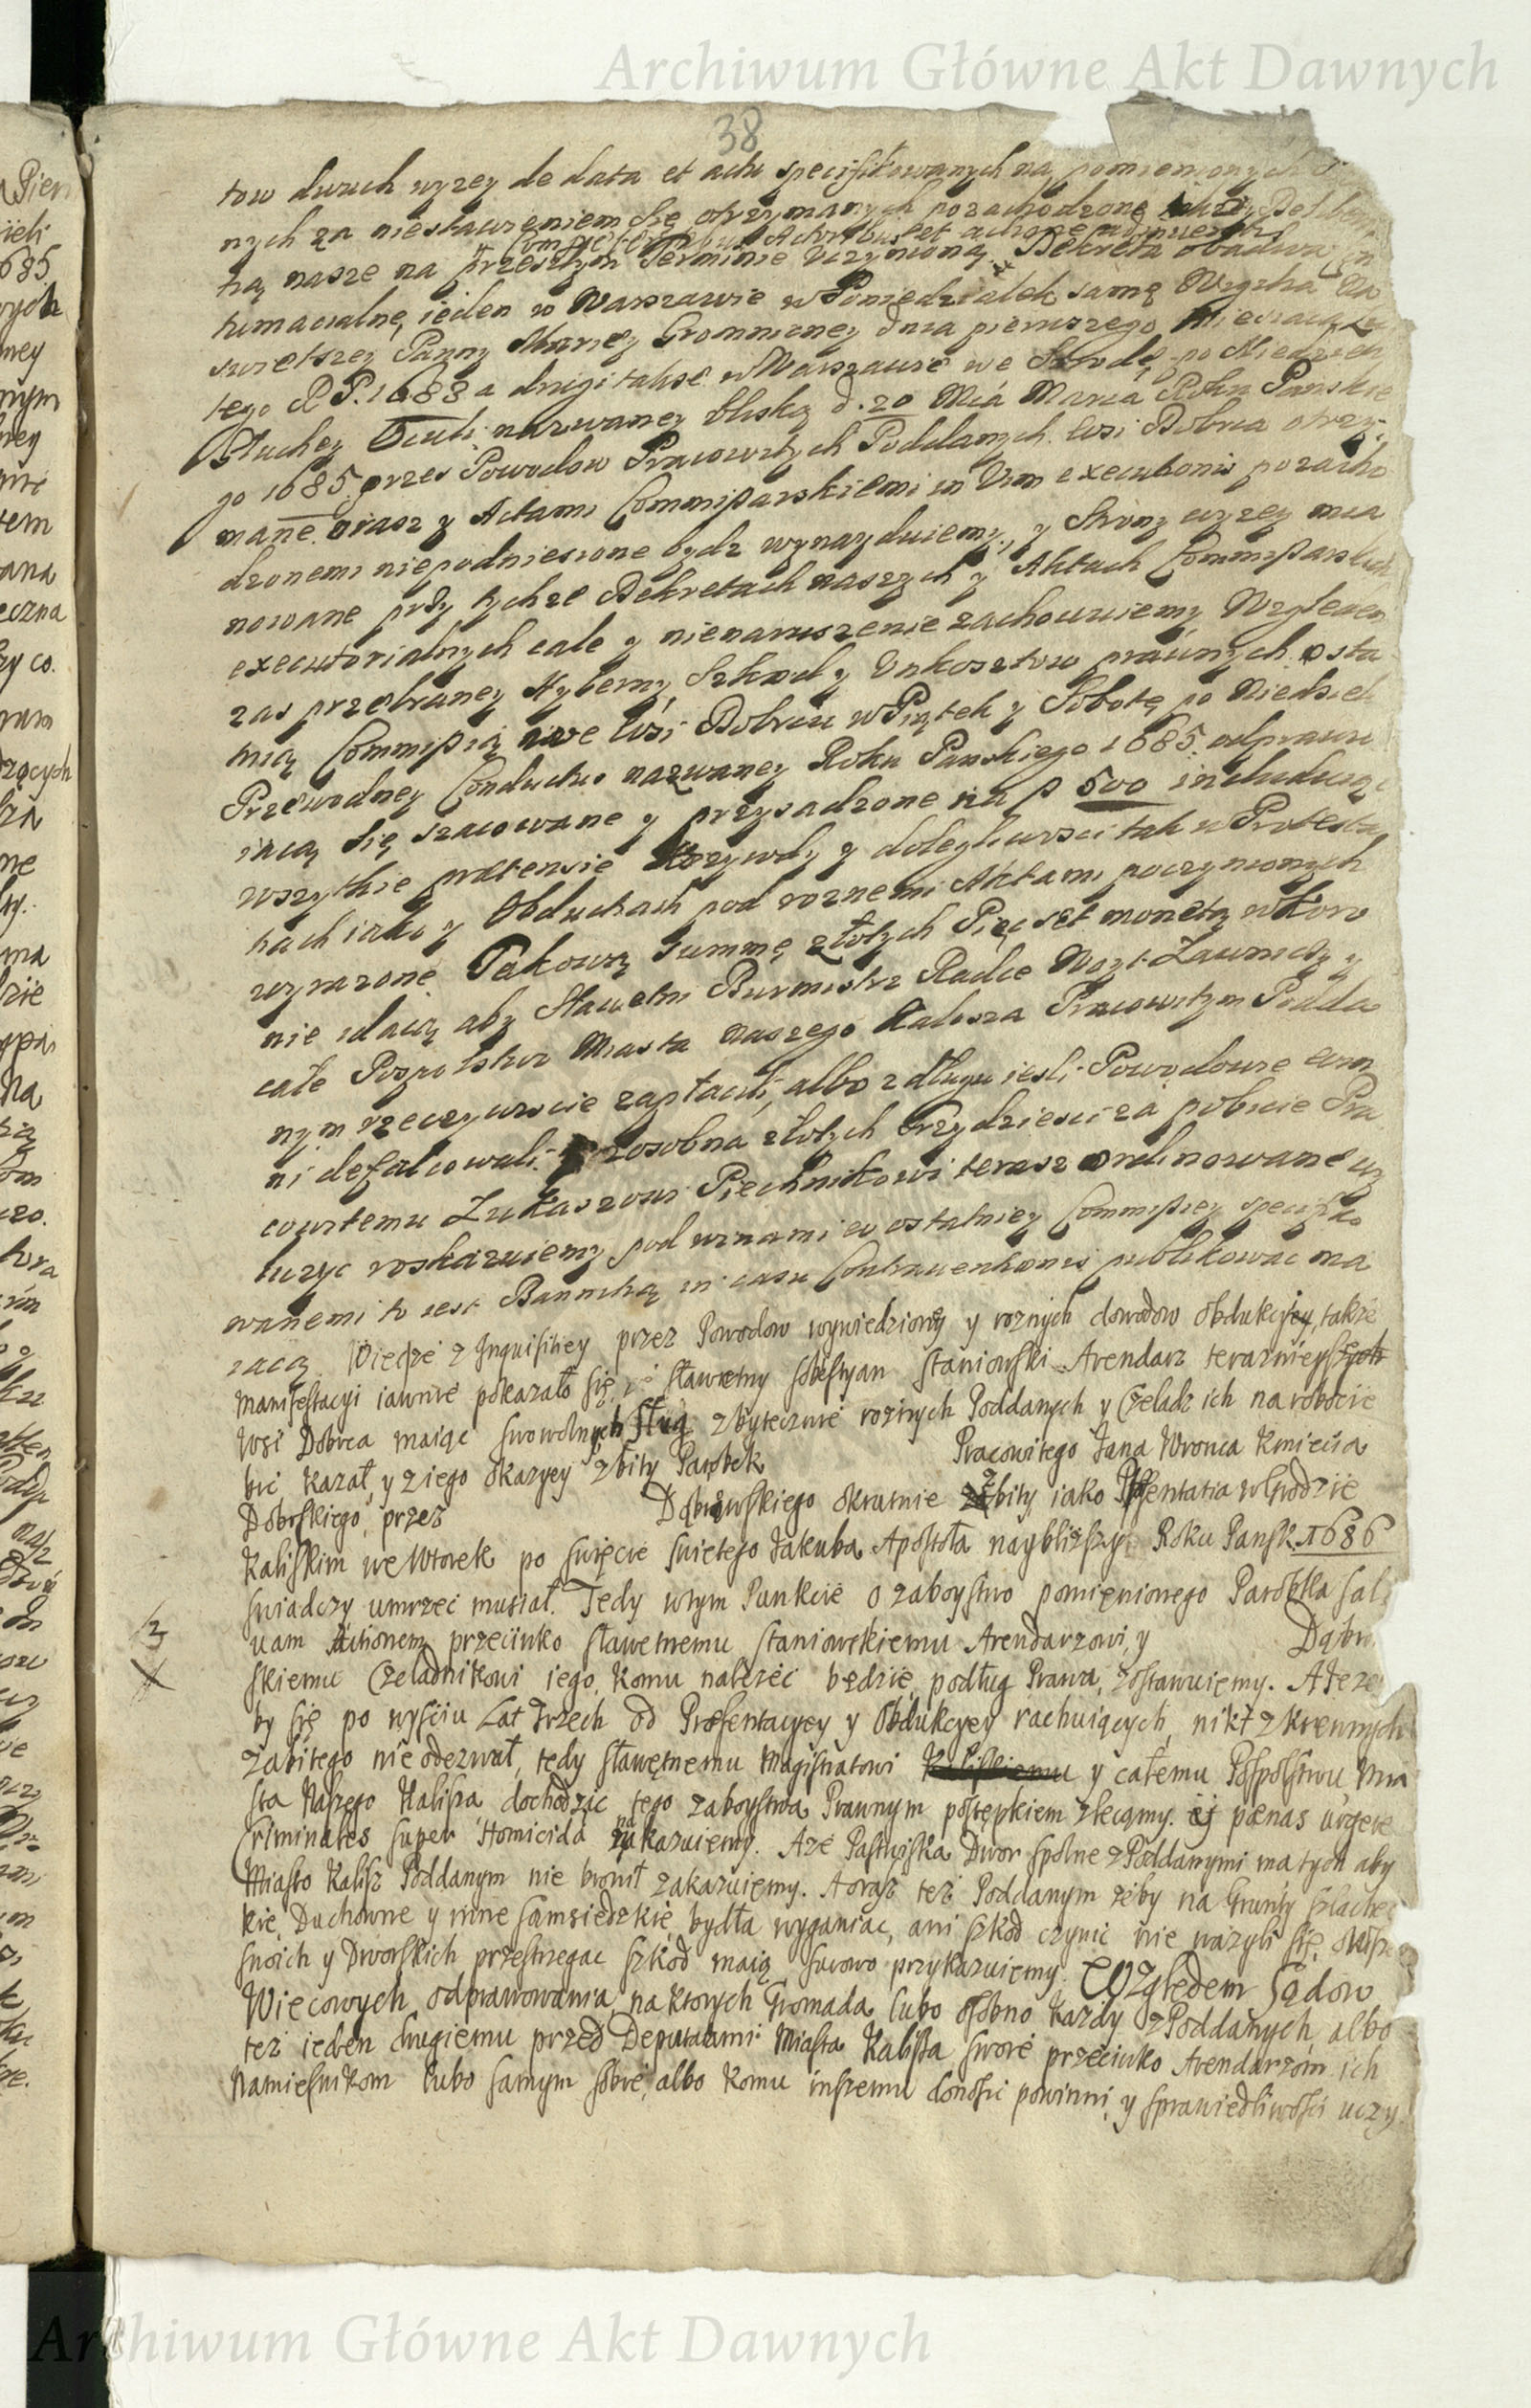 Archiwum Główne Akt Dawnych
38
tow dwuch wyzey de data et actu specifikowanych na pomienionych
nych za niestawieniem się otrzymanych pozachodzone
Comp Actoribus et actione
tną nasze na przeszłym Terminie uczynioną. Dekreta obadwa Con
tumacialne, ieden w Warszawie w Poniedziałek samą Wigilią Na
swietszey Panny Maryey Gromniczney dnia pierwszego Miesiąca
tego R P. 1683 a drugi takze w Warszawie we Srodę po Niedzieli
Głuchey Oculi nazwaney blisko d. 20 Mca Marca Roku Panskie
go 1685 przez Powodow Pracowitych Poddanych wsi Dobrca otrzy
mane oraz z Actami Commissarskiemi in vim executionis pozacho
dzonemi niepodniesione bydz wynayduiemy, y Strony wyzey mia
nowane przy tychze Dekretach naszych y Aktach Commissarskich
executorialnych cale y nienaruszenie zachowuiemy Względem
zas przebraney Hyberny, Szkod y Unkosztow prawnych osta
tnią Commissią we wsi Dobrcu w Piątek y Sobotę po Niedzieli
Przewodney Conductus nazwaney Roku Panskiego 1685. odprawu
iącą się szacowane y przysadzone na p 500 includuiąc
wszytkie praetensie Krzywdy y dolegliwosci tak w Protesta
tiach iako y Obductach pod roznemi Aktami poczynionych
wyrazone. Takową summę złotych Pięcset monetą w Koro
nie idącą aby Sławetni Burmistrz Radce Woyt Ławnicy y
całe Pospolstwo Miasta naszego Kalisza Pracowitym Podda
nym rzeczywiscie zapłacili, albo z długu iesli Powodowie win
ni defalcowali. zosobna złotych Trzydziesci za pobicie Pra
cowitemu Łukaszowi Piechnikowi teraz ordinowane wy
liczyc roskazuiemy pod winami w ostatniey Commissiey specifiko
wanemi to iest Bannitią in casu Contraventionis publikowac ma
iącą. Więc ze z Inquisitiey przez Powodow wywiedzioney y roznych dowodow Obdukcyey, także
Manifestacyi iawnie pokazało się, że sławetny Sobestyan Staniowski Arendarz teraznieyszych
Wsi Dobrca maiąc swowolnych Sług zbytecznie roznych Poddanych y Czeladz ich na robocie
bić kazał, y z iego okazyey zbity Parobek Pracowitego Jana Wronca Kmiecia
Dobrskiego, przez Dąbrowskiego okrutnie zbity iako Præsentatia w Grodzie
Kaliskim we Wtorek po święcie Swiętego Jakuba Apostoła naybliższy Roku Pansk. 1686
świadczy umrzeć musiał. Tedy w tym Punkcie o zaboystwo pomienionego Parobka sal
3
vam Actionem przeciwko sławetnemu Staniowskiemu Arendarzowi, y Dąbro
skiemu Czeladnikowi iego, komu należeć będzie, podług Prawa, zostawuiemy. A że że
by się po wyściu Lat Trzech od Præsentacyey y Obdukcyey rachuiących, nikt z krewnych
zabitego nie odezwał, tedy sławętnemu Magistratowi Kaliskiemu y całemu Pospolstwu Mia
sta Naszego Kalisza dochodzić tego zaboystwa Prawnym postępkiem zlecamy. et pœnas urgere
Criminales super Homicida nakazuiemy. A że Pastwiska Dwor spolne z Poddanymi ma tych aby
Miasto Kalisz Poddanym nie bronił zakazuiemy. A oraz też Poddanym żeby na Grunty Szlachec
kie, Duchowne y inne sąmsiedzkie bydła wyganiac, ani szkod czynić nie ważyli się,
swoich y Dworskich przestrzegac szkod maią surowo przykazuiemy. Względem Sądow
Wiecowych odprawowania, na ktorych Gromada lubo osobno każdy z Poddanych, albo
też ieden drugiemu przed Deputatami Miasta Kalisza swoie przeciwko Arendarzom ich
Namiesnikom lubo samym sobie, albo komu inszemu donosić powinni, y sprawiedliwości uczy
Archiwum Główne Akt Dawnych